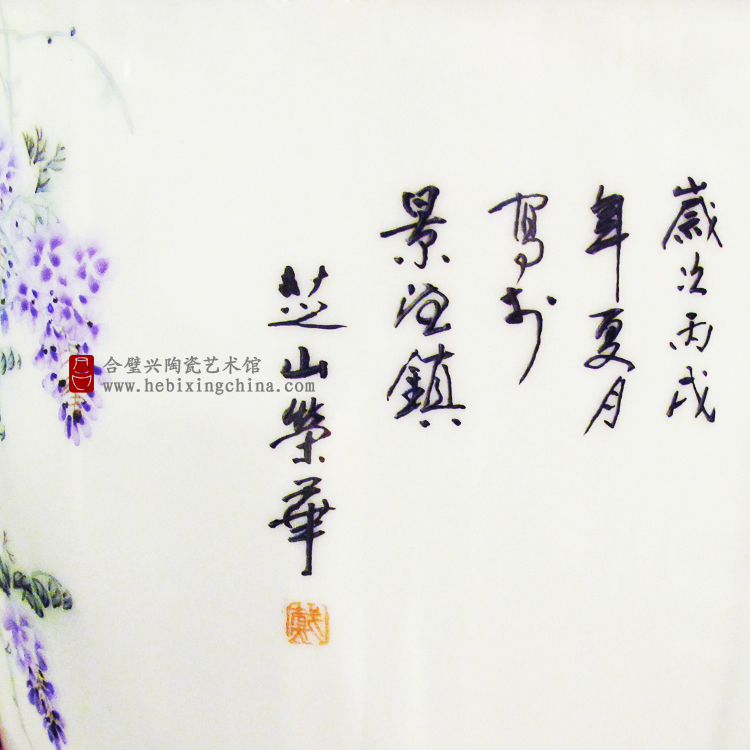 歲次丙戌
年夏月
寫於
景德鎮
芝山榮華
戴
合璧兴陶瓷艺术馆
www.hebixingchina.com